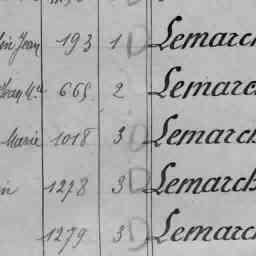 lin Jean 193 1 D Lemarch
Jean Mie 665 2 D Lemarch
Marie 1018 3 D Lemarch
in 1278 3 D Lemarch
1279 3 D Lemarch